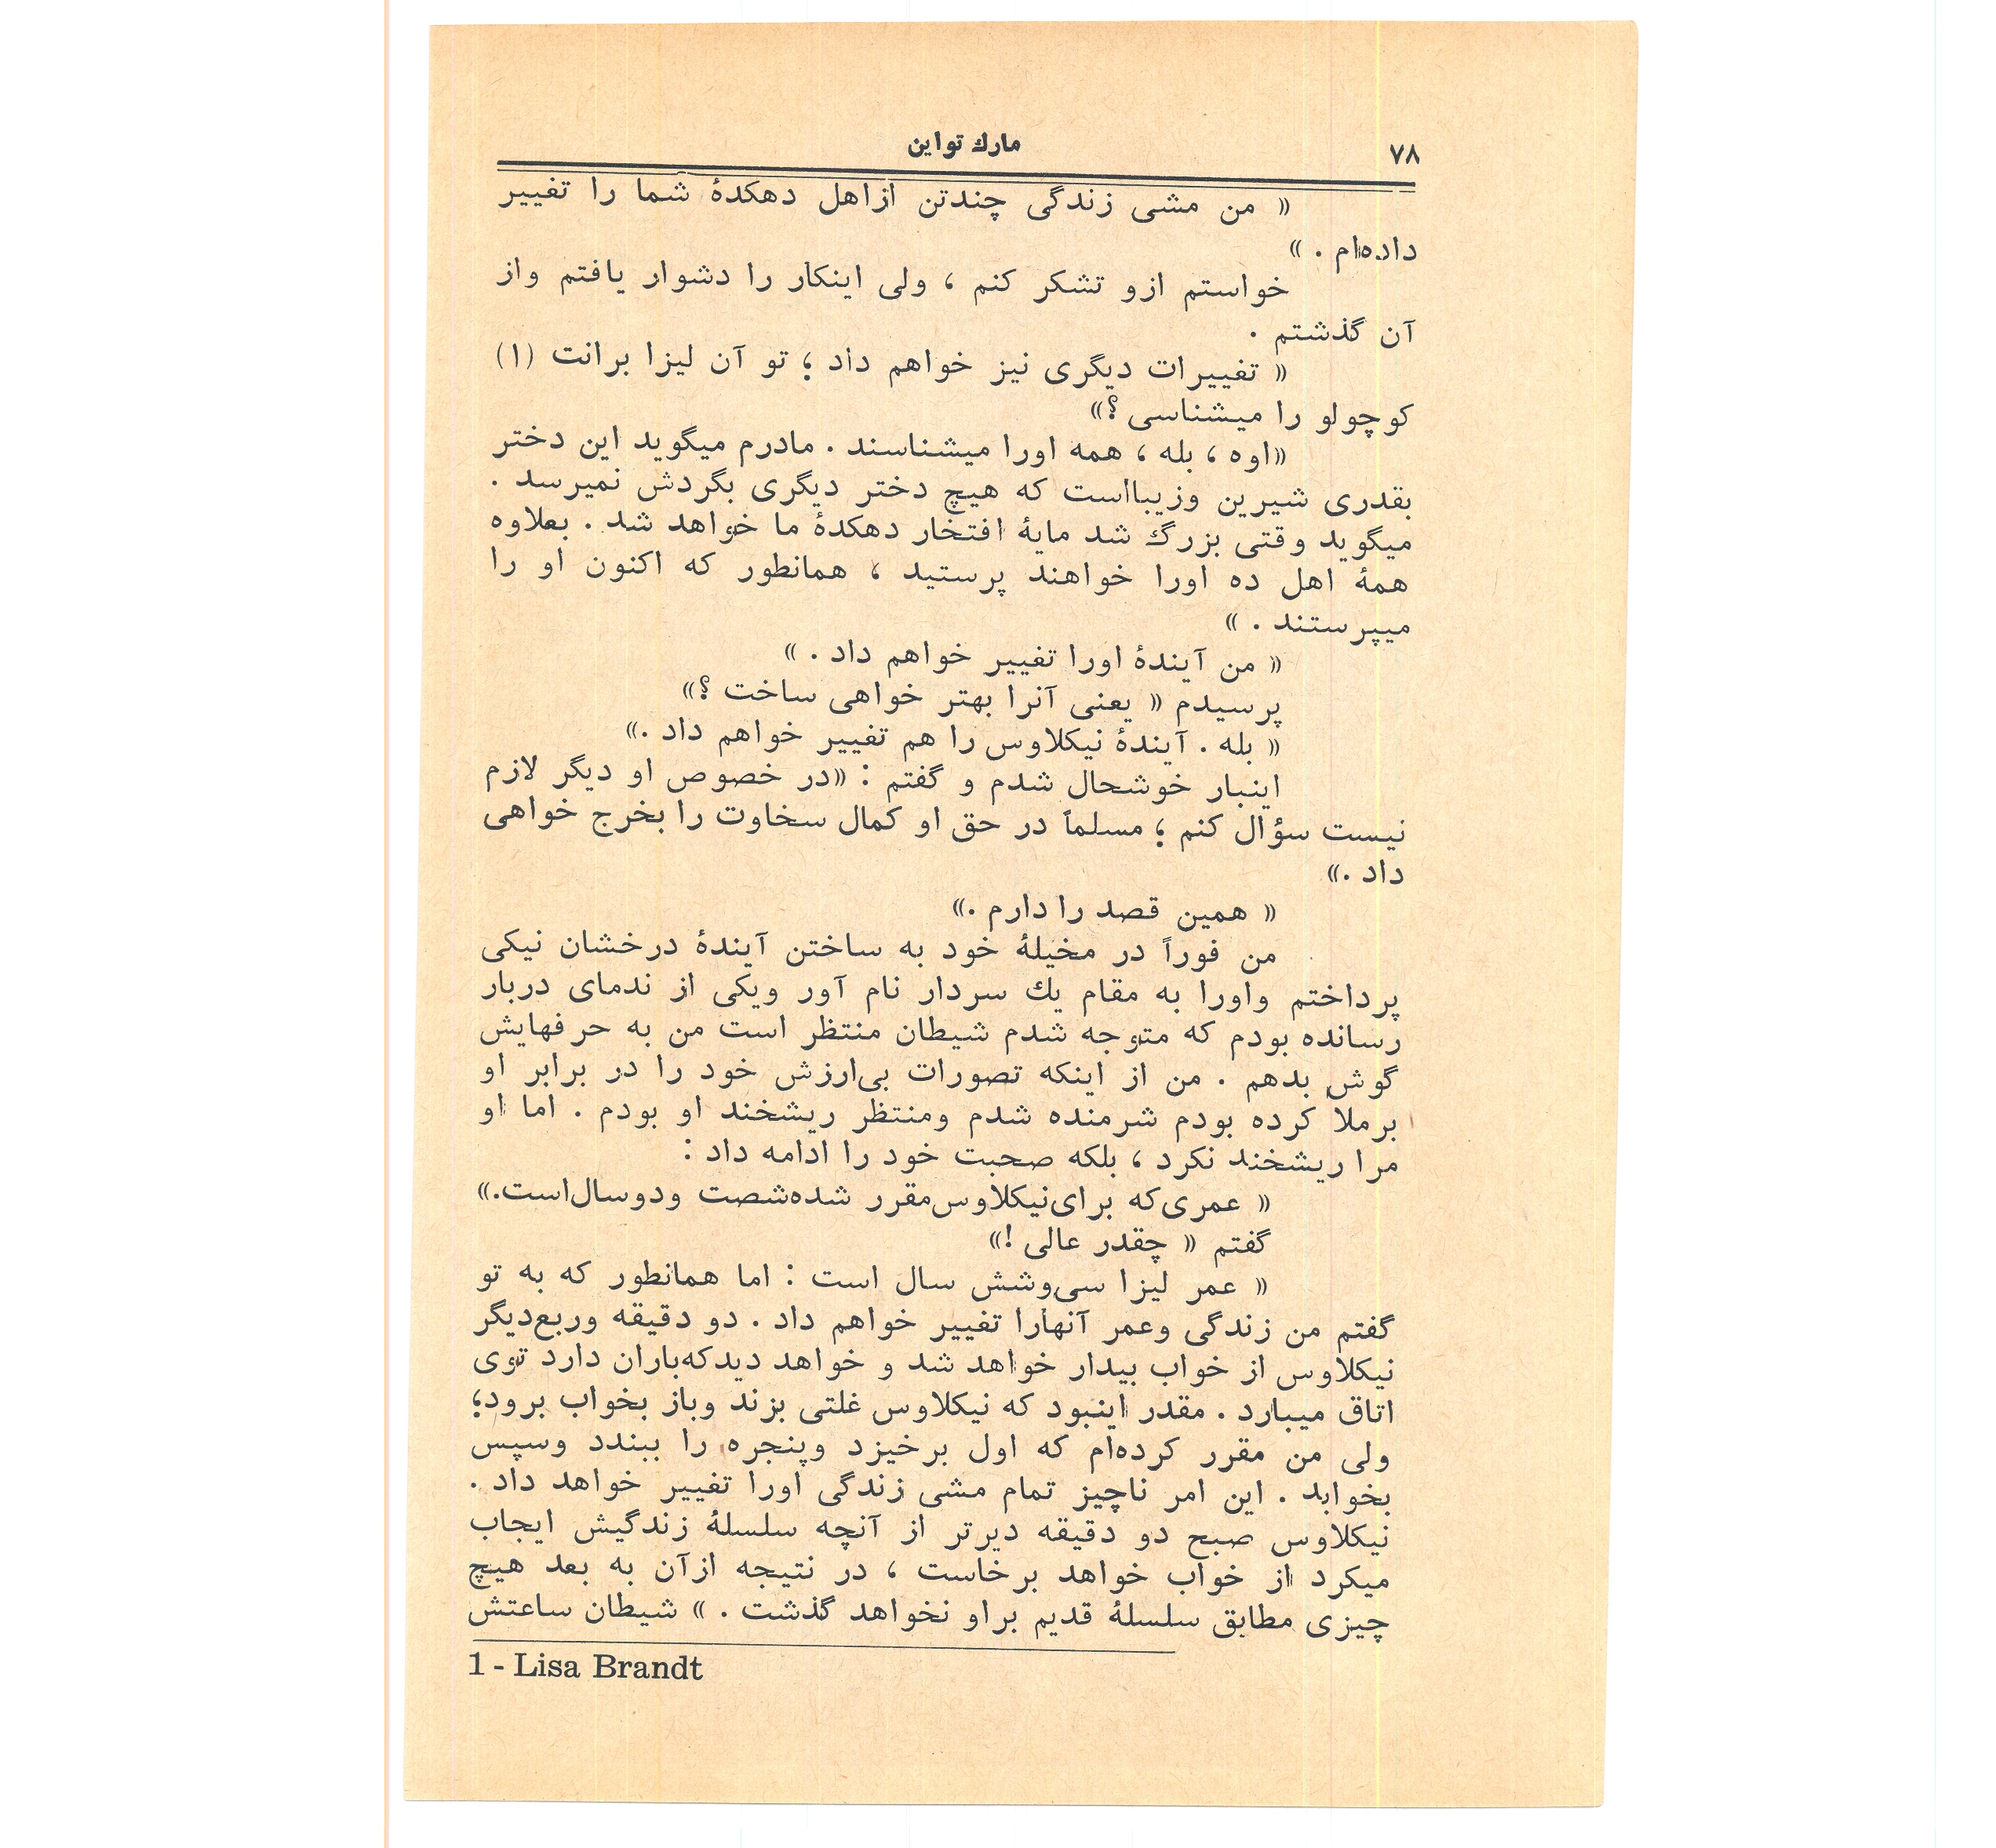 ۷۸
مارك تواین
« من مشی زندگی چندتن ازاهل دهکدهٔ شما را تغییر
داده‌ام . »
خواستم ازو تشکر کنم ، ولی اینکار را دشوار یافتم واز
آن گذشتم .
« تغییرات دیگری نیز خواهم داد ؛ تو آن لیزا برانت (۱)
کوچولو را میشناسی ؟»
«اوه ، بله ، همه اورا میشناسند . مادرم میگوید این دختر
بقدری شیرین وزیبااست که هیچ دختر دیگری بگردش نمیرسد .
میگوید وقتی بزرگ شد مایهٔ افتخار دهکدهٔ ما خواهد شد . بعلاوه
همهٔ اهل ده اورا خواهند پرستید ، همانطور که اکنون او را
میپرستند . »
« من آیندهٔ اورا تغییر خواهم داد . »
پرسیدم « یعنی آنرا بهتر خواهی ساخت ؟»
« بله . آیندهٔ نیکلاوس را هم تغییر خواهم داد .»
اینبار خوشحال شدم و گفتم : «در خصوص او دیگر لازم
نیست سؤال کنم ؛ مسلماً در حق او کمال سخاوت را بخرج خواهی
داد .»
« همین قصد را دارم .»
من فوراً در مخیلهٔ خود به ساختن آیندهٔ درخشان نیکی
پرداختم واورا به مقام یك سردار نام آور ویکی از ندمای دربار
رسانده بودم که متوجه شدم شیطان منتظر است من به حرفهایش
گوش بدهم . من از اینکه تصورات بی‌ارزش خود را در برابر او
برملا کرده بودم شرمنده شدم ومنتظر ریشخند او بودم . اما او
مرا ریشخند نکرد ، بلکه صحبت خود را ادامه داد :
« عمری‌که برای‌نیکلاوس‌مقرر شده‌شصت ودوسال‌است.»
گفتم « چقدر عالی !»
« عمر لیزا سی‌وشش سال است : اما همانطور که به تو
گفتم من زندگی وعمر آنهارا تغییر خواهم داد . دو دقیقه وربع‌دیگر
نیکلاوس از خواب بیدار خواهد شد و خواهد دیدکه‌باران دارد توی
اتاق میبارد . مقدر اینبود که نیکلاوس غلتی بزند وباز بخواب برود؛
ولی من مقرر کرده‌ام که اول برخیزد وپنجره را ببندد وسپس
بخوابد . این امر ناچیز تمام مشی زندگی اورا تغییر خواهد داد .
نیکلاوس صبح دو دقیقه دیرتر از آنچه سلسلهٔ زندگیش ایجاب
میکرد از خواب خواهد برخاست ، در نتیجه ازآن به بعد هیچ
چیزی مطابق سلسلهٔ قدیم براو نخواهد گذشت . » شیطان ساعتش
1 - Lisa Brandt